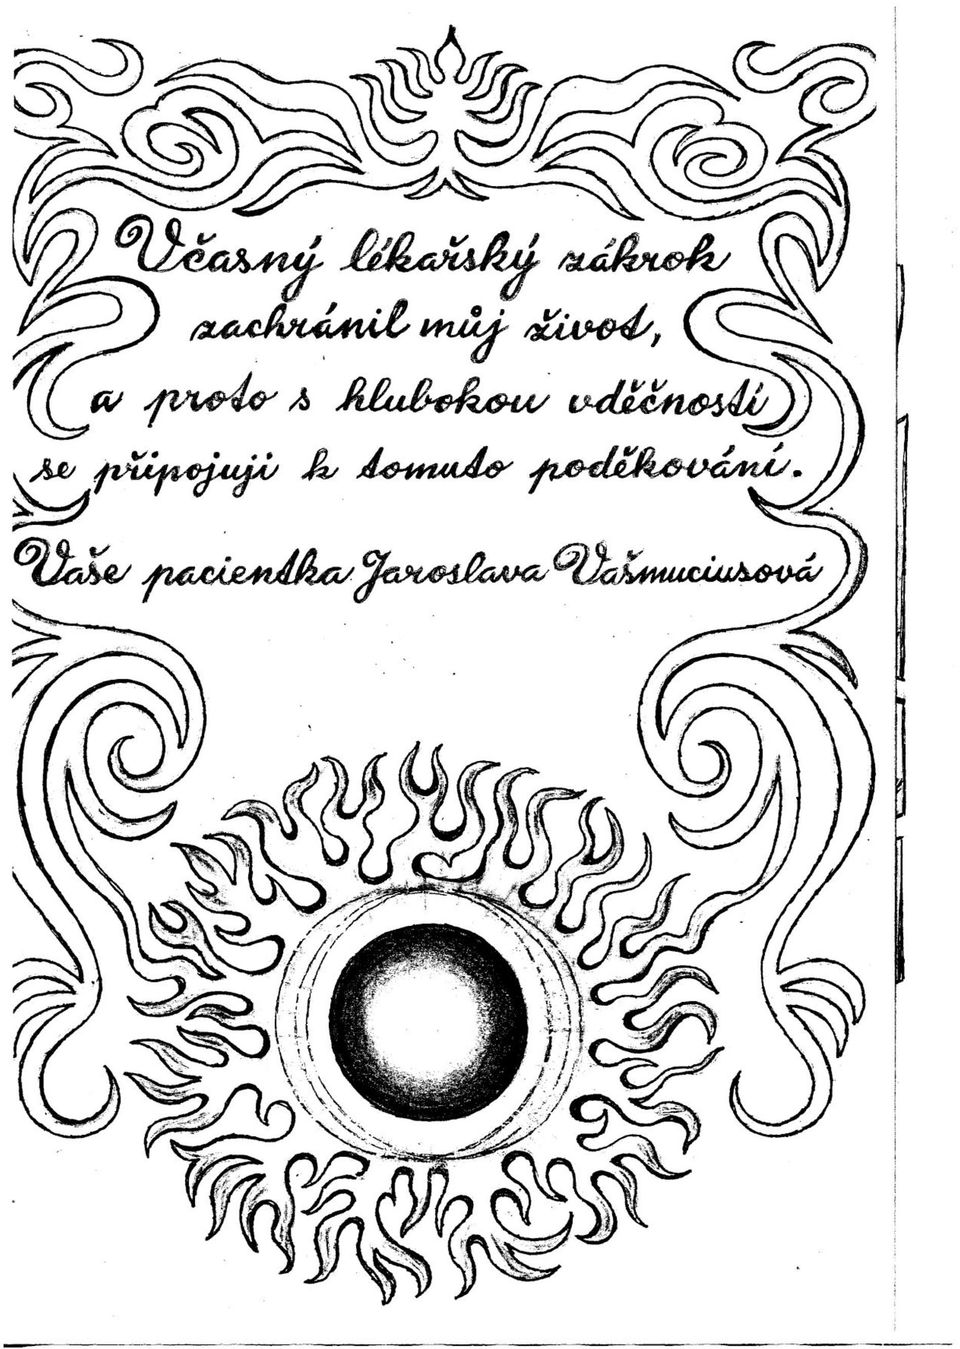 Včasný lékařský zákrok
zachránil můj život,
a proto s hlubokou vděčností
se připojuji k tomuto poděkování.
Vaše pacientka Jaroslava Vašmuciusová